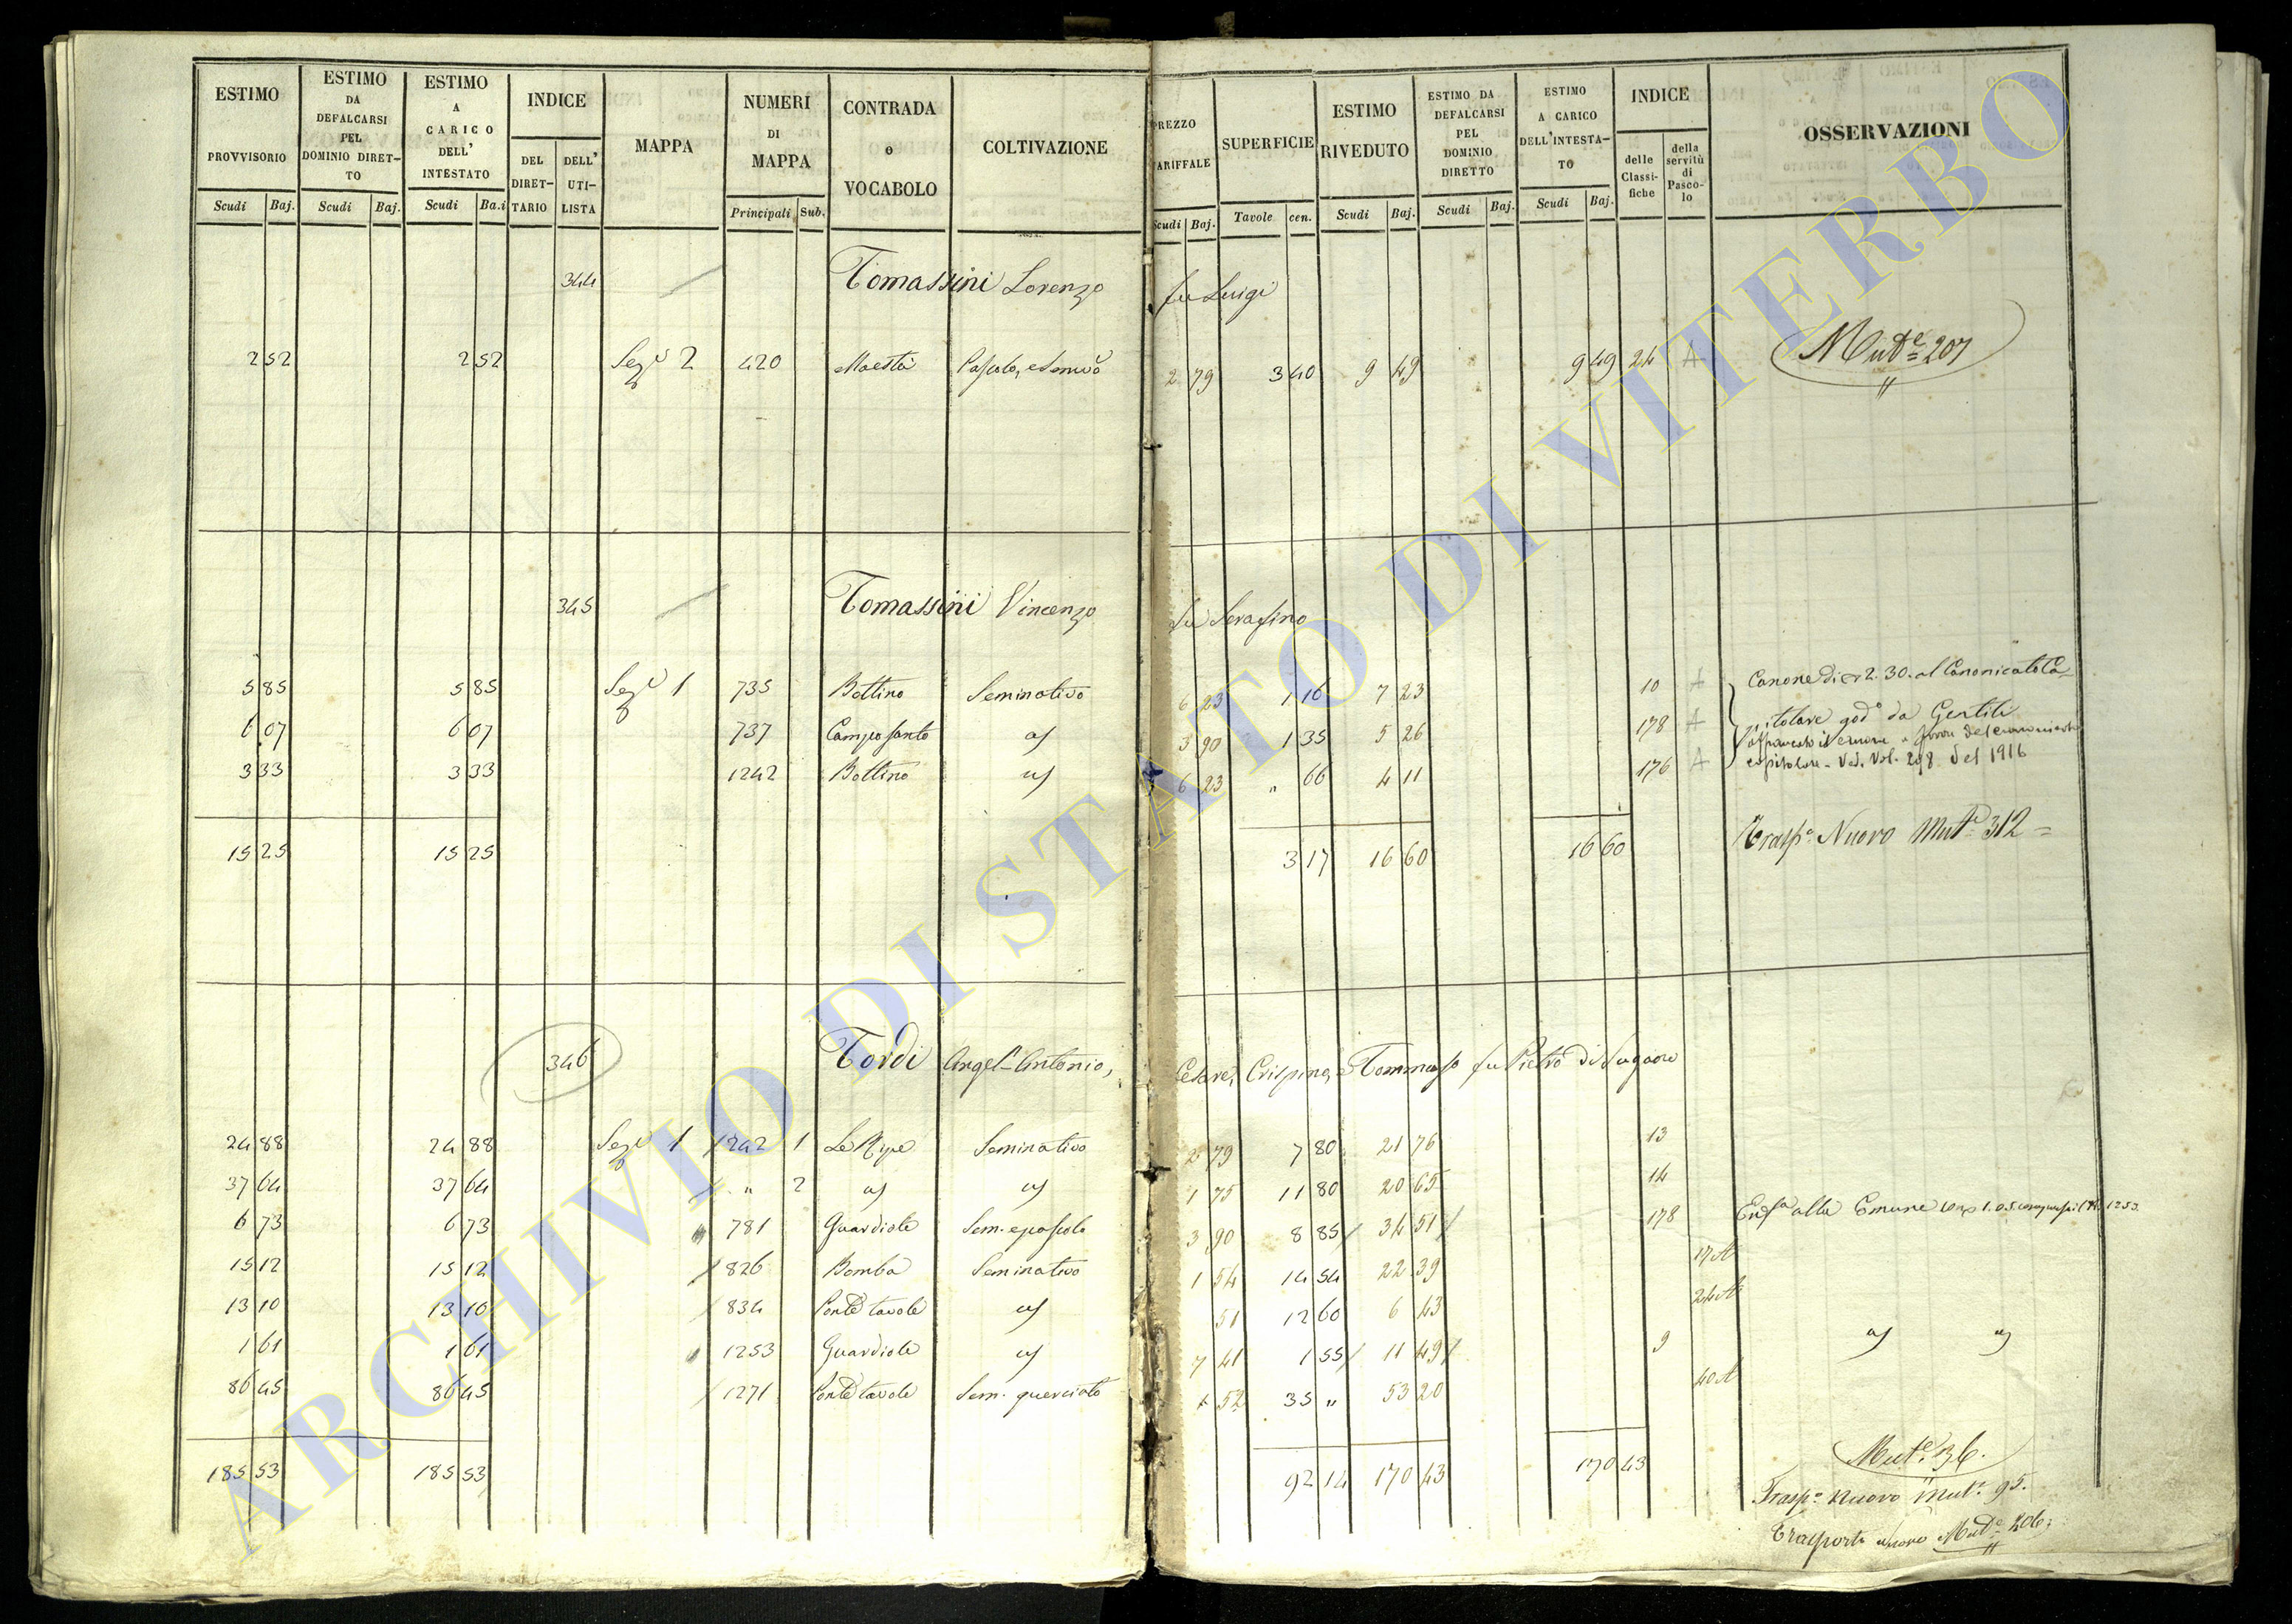 ESTIMO PROVVISORIO Scudi Baj.
ESTIMO DA DEFALCARSI PEL DOMINIO DIRETTO Scudi Baj.
ESTIMO A CARICO DELL' INTESTATO Scudi Ba.i
INDICE DEL DIRETTARIO DELL' UTILISTA
MAPPA
NUMERI DI MAPPA Principali Sub.
CONTRADA o VOCABOLO
COLTIVAZIONE
PREZZO TARIFFALE Scudi Baj.
SUPERFICIE Tavole cen.
ESTIMO RIVEDUTO Scudi Baj.
ESTIMO DA DEFALCARSI PEL DOMINIO DIRETTO Scudi Baj.
ESTIMO A CARICO DELL'INTESTATO Scudi Baj.
INDICE delle Classifiche della servitù di Pascolo
OSSERVAZIONI
344 Tomassini Lorenzo fu Luigi
2 52 2 52 Sez.e 2 420 Maestà Pascolo, e Semvo 2 79 3 40 9 49 9 49 24 A Mut.e 207
345 Tomassini Vincenzo fu Serafino
5 85 5 85 Sez.e 1 735 Bottino Seminativo 6 23 1 16 7 23 10 A Canone di 2.30. al Canonicato Ca-
6 07 6 07 737 Camposanto id 3 90 1 35 5 26 178 A pitolare god.o da Gentili
3 33 3 33 1242 Bottino id 6 23 " 66 4 11 176 A
capitolare - Ved. Vol. 298 del 1916
15 25 15 25 3 17 16 60 16 60 Trasp.o Nuovo Mut.e 312 =
346 Tordi Angel-Antonio, Cesare, Crispino, e Tommaso fu Pietro di Lugnano
24 88 24 88 Sez.e 1 1242 1 Le Ripe Seminativo 2 79 7 80 21 76 13
37 64 37 64 " 2 id id 1 75 11 80 20 65 14
6 73 6 73 781 Guardiole Sem. e pascolo 3 90 8 85 34 51 178 alla Comune 1.05 1253
15 12 15 12 826 Bomba Seminativo 1 54 14 54 22 39 17 A
13 10 13 10 834 Ponte tavole id 51 12 60 6 43 24 A
1 61 1 61 1253 Guardiole id 7 41 1 55 11 49 9 id id
86 45 86 45 1271 Ponte tavole Sem. querciato 1 52 35 " 53 20 40 A
185 53 185 53 92 14 170 43 170 43 Mut.e 36.
Trasp.o nuovo Mut.e 95.
Trasporto nuovo Mut.e 206
ARCHIVIO DI STATO DI VITERBO